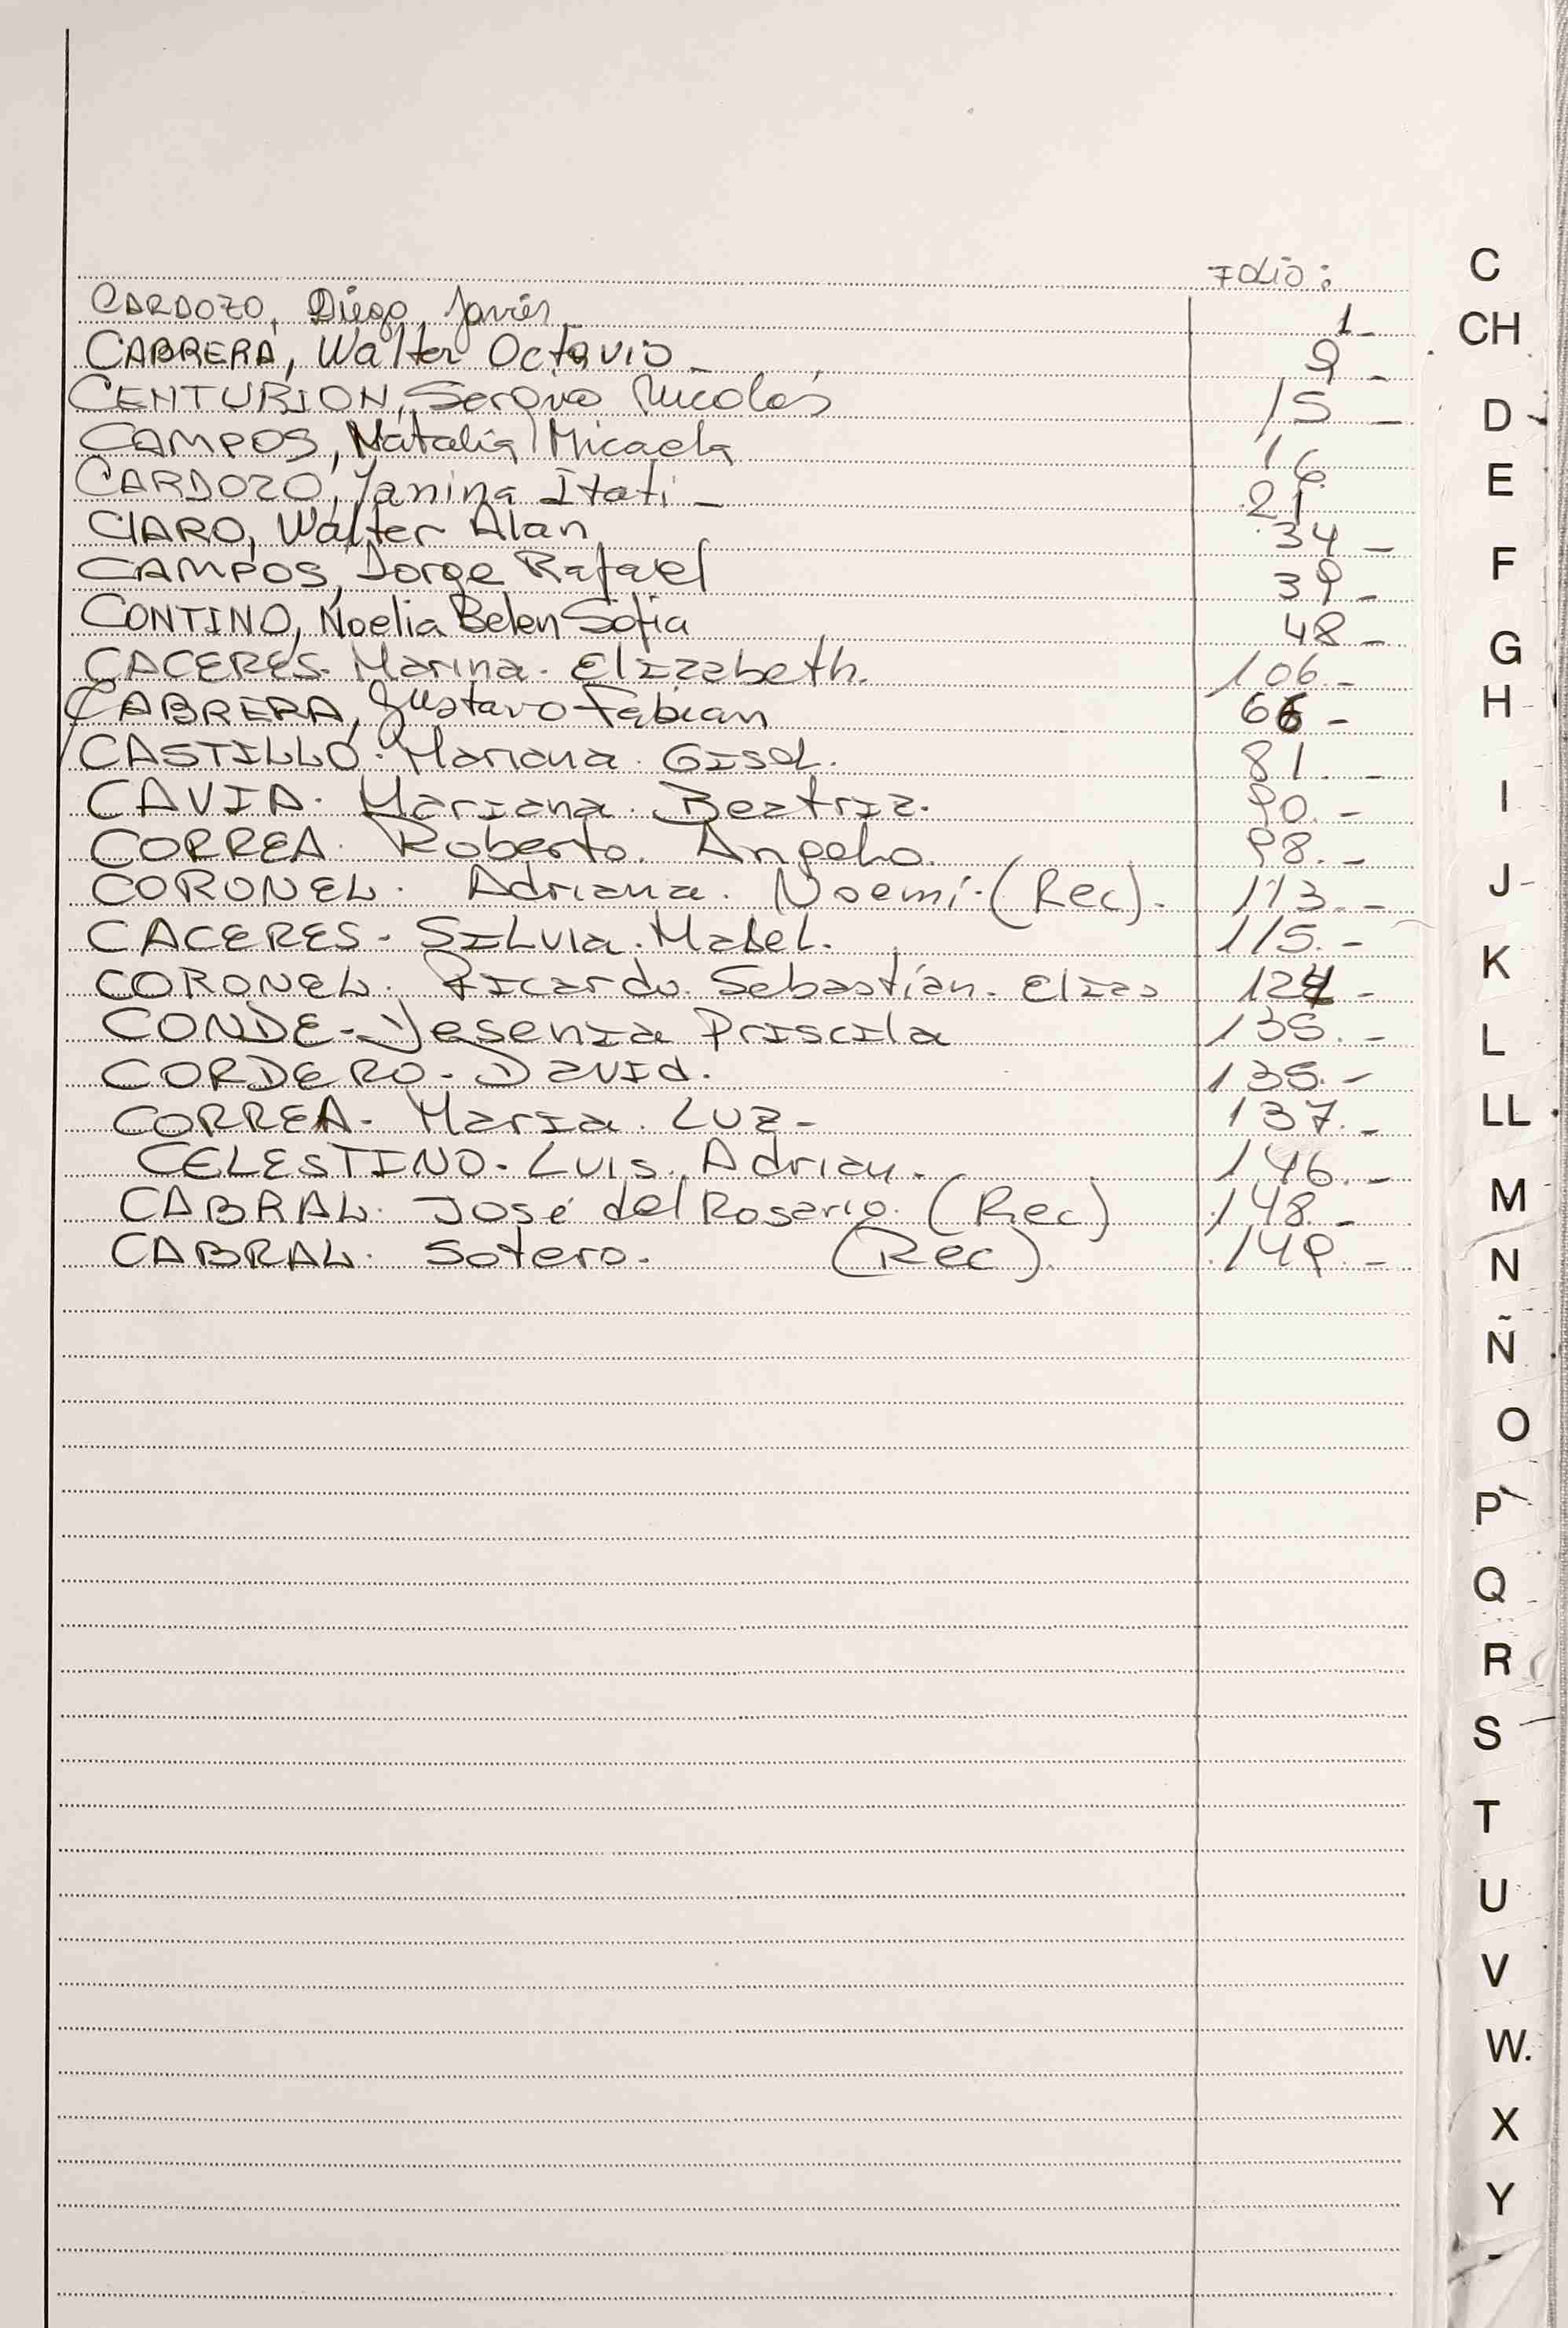 FOLIO:
CARDOZO, Diego Javier 1-
CABRERA, Walter Octavio - 9-
CENTURION, Sergio Nicolás 15-
CAMPOS, Natalia Micaela 16
CARDOZO, Yanina Itati - 21
CLARO, Walter Alan 34-
CAMPOS, Jorge Rafael 39-
CONTINO, Noelia Belen Sofia 48-
CACERES. Marina. Elizabeth. 106.-
CABRERA, Gustavo Fabian 66-
CASTILLO. Mariana. Gisel. 81.-
CAVIA. Mariana. Beatriz. 90.-
CORREA. Roberto. Angelo. 98.-
CORONEL. Adriana. Noemí.(Rec). 113.-
CACERES. Silvia. Mabel. 115.-
CORONEL. Ricardo. Sebastián. Elias 124-
CONDE-Yesenia Priscila 135.-
CORDERO-David. 135.-
CORREA- Maria. Luz- 137.-
CELESTINO. Luis. Adrian. 146.-
CABRAL. José del Rosario. (Rec) 148.-
CABRAL. Sotero. (Rec). 149.-
C
CH
D
E
F
G
H
I
J
K
L
LL
M
N
Ñ
O
P
Q
R
S
T
U
V
W.
X
Y